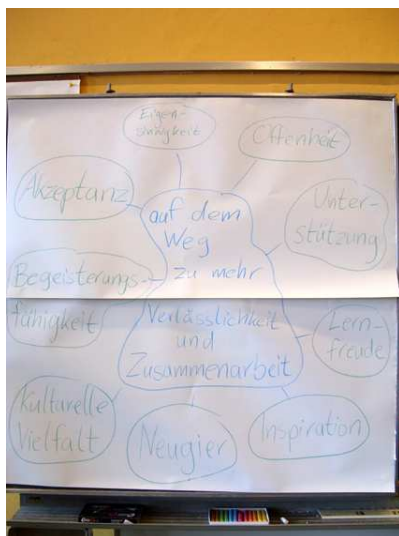 Eigen-
sinnigkeit
Offenheit
Akzeptanz
auf dem
Weg
zu mehr
Verlässlichkeit
und
Zusammenarbeit
Unter-
stützung
Begeisterungs-
fähigkeit
Lern-
freude
Kulturelle
Vielfalt
Neugier
Inspiration